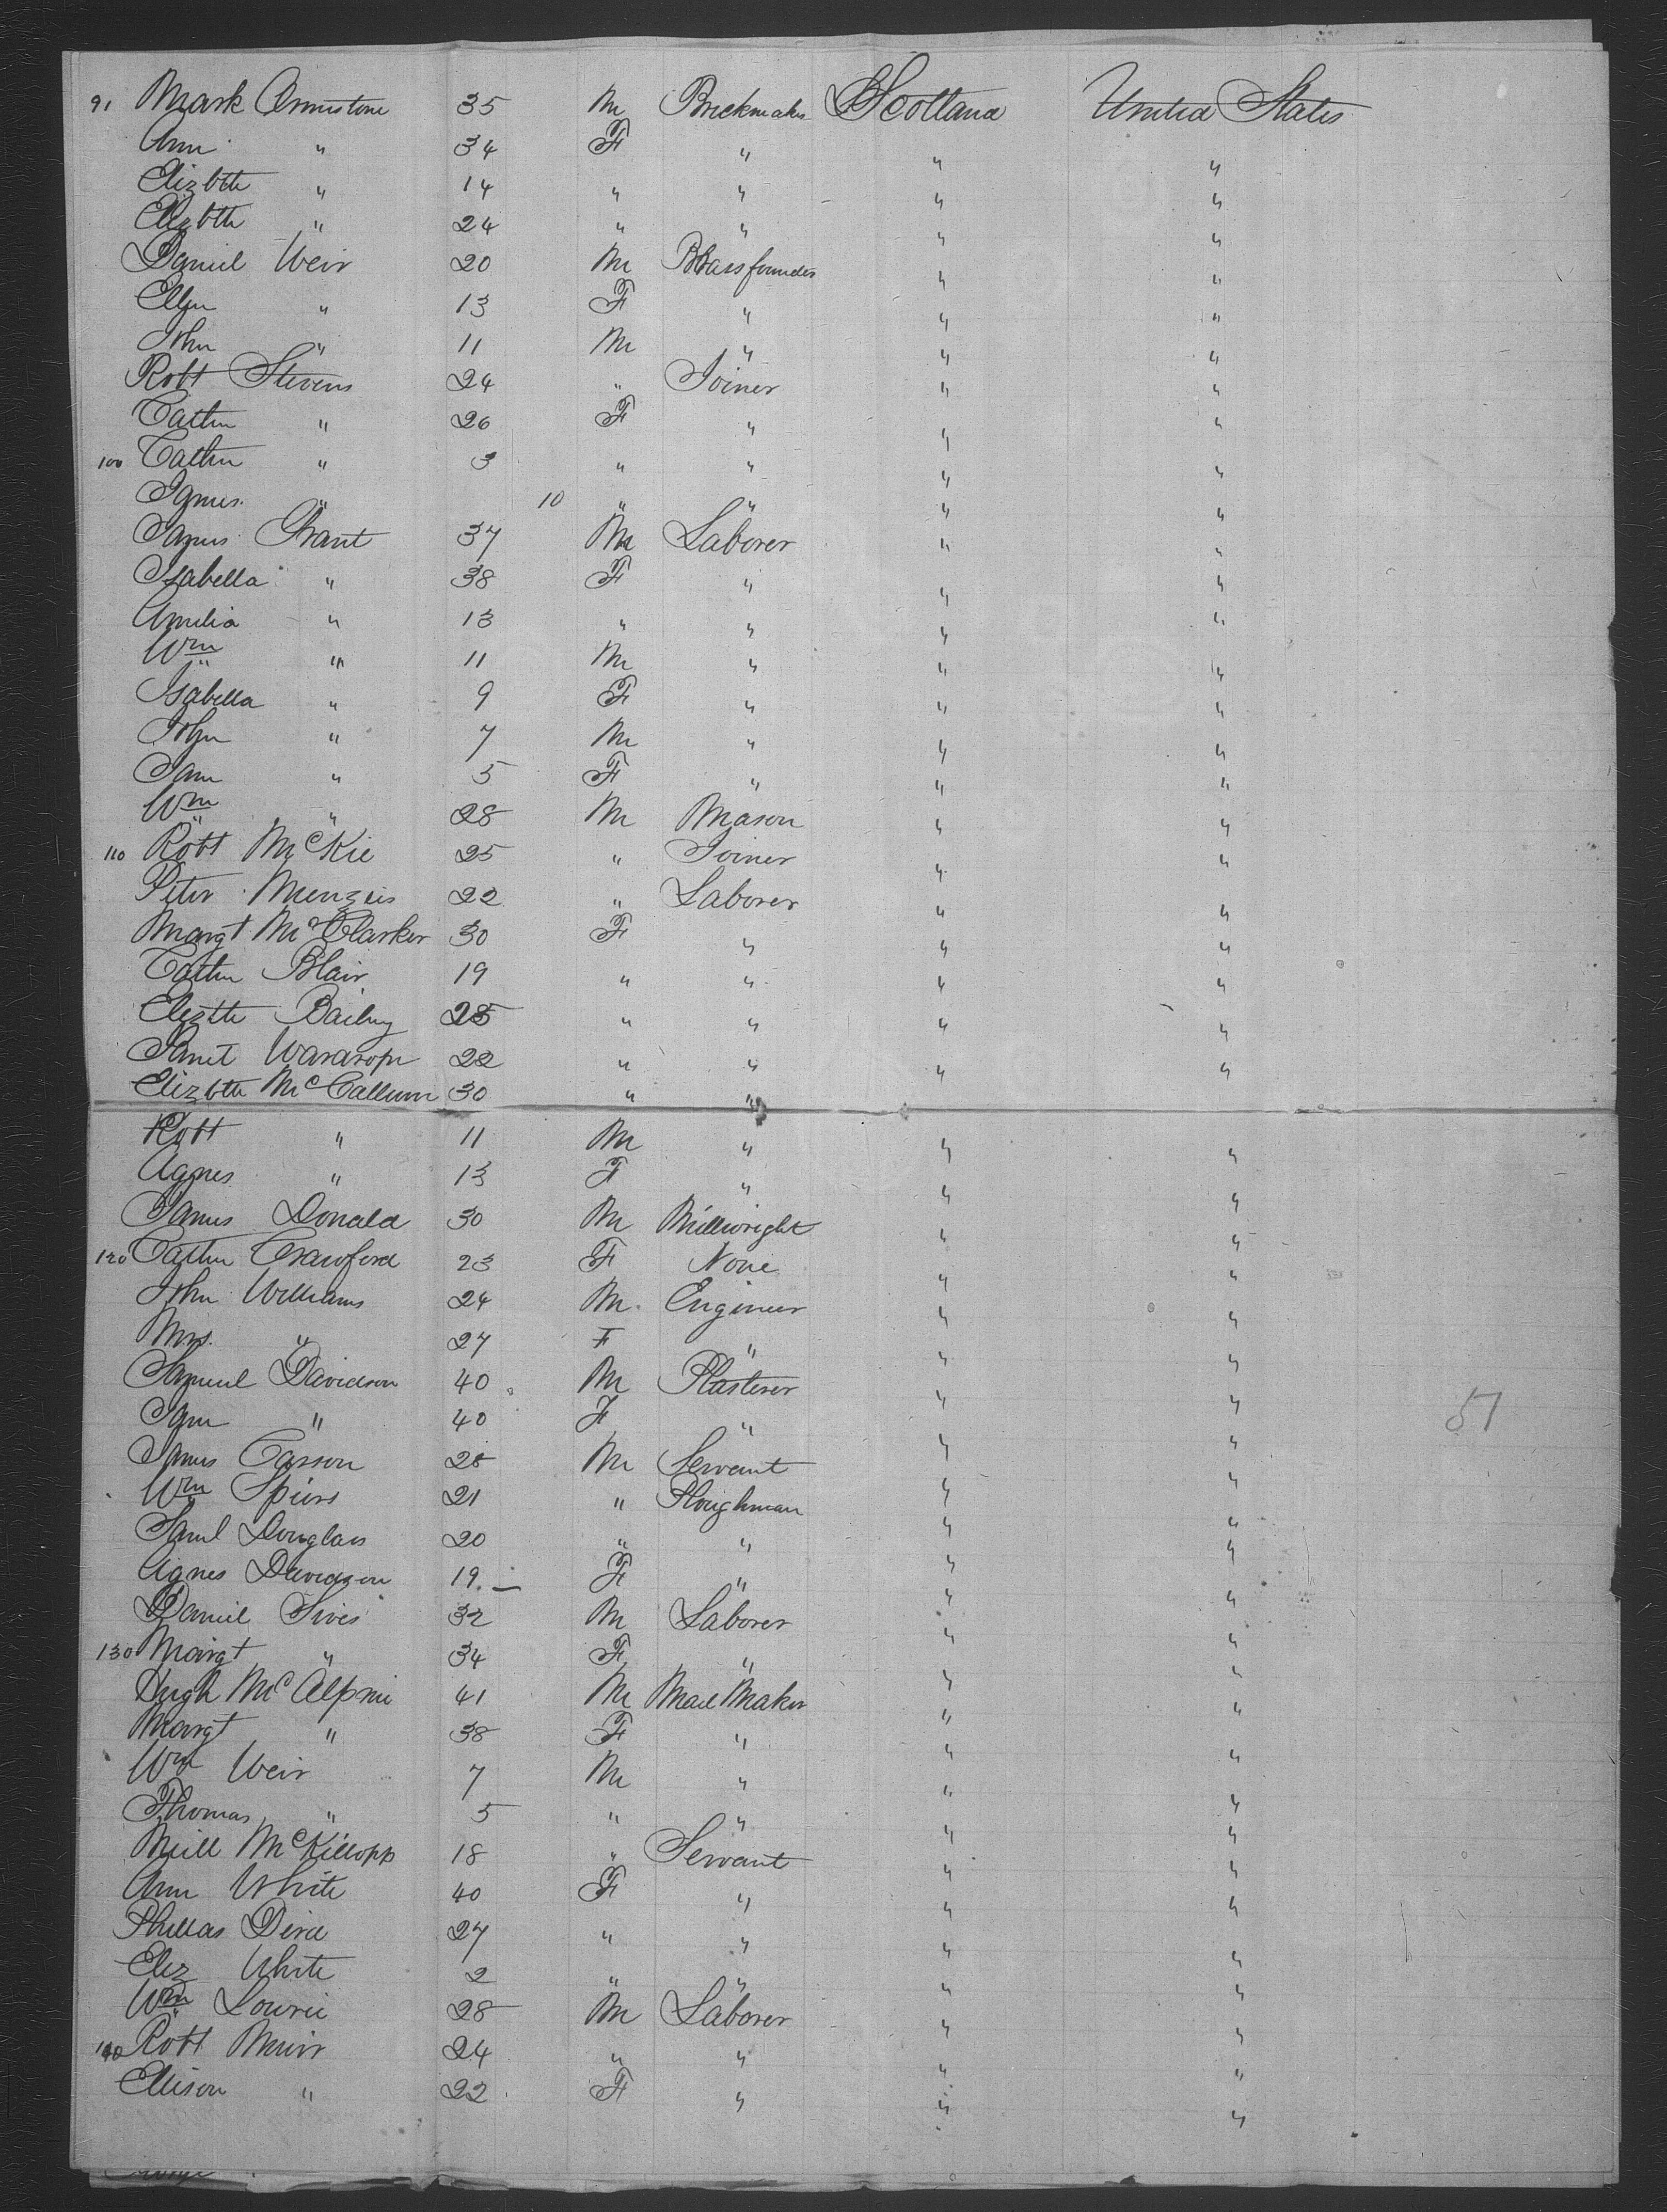 91 Mark Armistone 35 M Brickmaker Scotland United States
Ann " 34 F " " "
Elizbth " 14 " " " "
Elizbth " 24 " " " "
Daniel Weir 20 M Brassfounder " "
Ellen " 13 F " " "
John " 11 M " " "
Robt Stevens 24 " Joiner " "
Cathn " 26 F " " "
100 Cathn " 3 " " " "
Agnes " 10 " " " "
James Grant 37 M Laborer " "
Isabella " 38 F " " "
Amelia " 13 " " " "
Wm " 11 M " " "
Isabella " 9 F " " "
John " 7 M " " "
Jane " 5 F " " "
Wm " 28 M Mason " "
110 Robt McKie 25 " Joiner " "
Peter Menzies 22 " Laborer " "
Margt McClarker 30 F " " "
Cathn Blair 19 " " " "
Elizth Bailey 25 " " " "
Janet Wardrope 22 " " " "
Elizbth McCallum 30 " "
Robt " 11 M " " "
Agnes " 13 F " " "
James Donald 30 M Millwright " "
120 Cathn Crawford 23 F None " "
John Williams 24 M Engineer " "
Mrs. " 27 F " " "
Samuel Davidson 40 M Plasterer " "
Jane " 40 F " " "
57
James Casson 28 M Servant " "
Wm Spiers 21 " Ploughman " "
Saml Douglass 20 " " " "
Agnes Davidson 19 F " " "
Daniel Sives 32 M Laborer " "
130 Margt " 34 F " " "
Hugh McAlpine 41 M Mail Maker " "
Margt " 38 F " " "
Wm Weir 7 M " " "
Thomas " 5 " " " "
Neill McKillopp 18 " Servant " "
Ann White 40 F " " "
Phillas Dird 27 " " " "
Eliz White 2 " " " "
Wm Lowrie 28 M Laborer " "
140 Robt Muir 24 " " " "
Ellison " 22 F " " "